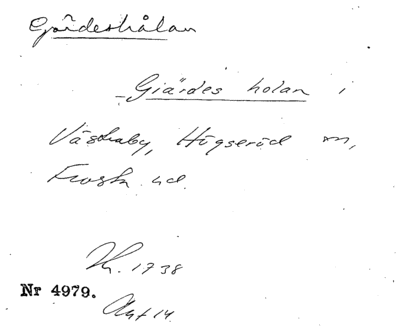 Gärdeshålan
Giärdes holan i
Västraby, Högseröd sn,
Frosta hd.
Kh. 1738
Nr 4979.
Akt 14